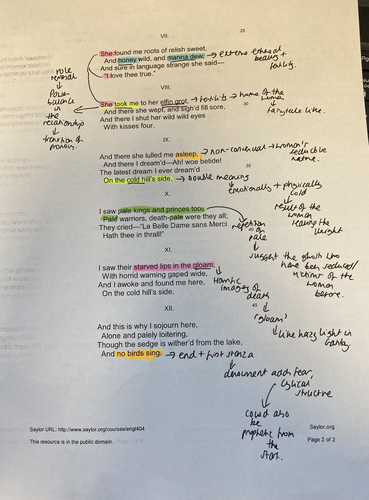 VII.
25
She found me roots of relish sweet,
And honey wild, and manna dew;
And sure in language strange she said—
"I love thee true."
→ extreme
beauty +
fertility.
role
reversal
↓
Power
balance in
the
relationship
↓
transition of
pronoun.
VIII.
She took me to her elfin grot,
→ fertility → home of the
woman
↳ fairytale like.
And there she wept, and sigh'd fill sore,
30
And there I shut her wild wild eyes
With kisses four.
IX.
And there she lulled me asleep,
→ non-consensual → women's
seductive
nature.
And there I dream'd—Ah! woe betide!
The latest dream I ever dream'd
35
On the cold hill's side.
→ double meaning
↳ emotionally + physically
cold
↳ result of the
woman
leaving the
knight
X.
I saw pale kings and princes too,
Pale warriors, death-pale were they all;
They cried—"La Belle Dame sans Merci
Hath thee in thrall!"
repetition
on
pale
↓
suggest the ghosts who
have been seduced/
victims of the
woman
before.
XI.
I saw their starved lips in the gloam,
With horrid warning gaped wide,
And I awoke and found me here,
On the cold hill's side.
→ Horrific
images of
death
45
"gloam"
↳ like hazy light in
XII.
And this is why I sojourn here,
Alone and palely loitering,
Though the sedge is wither'd from the lake,
And no birds sing.
→ end + first stanza
↓
adds fear,
cyclical
structure
↓
could also
be
prophetic from
the
start.
Saylor URL: http://www.saylor.org/courses/engl404
Saylor.org
This resource is in the public domain.
Page 2 of 2